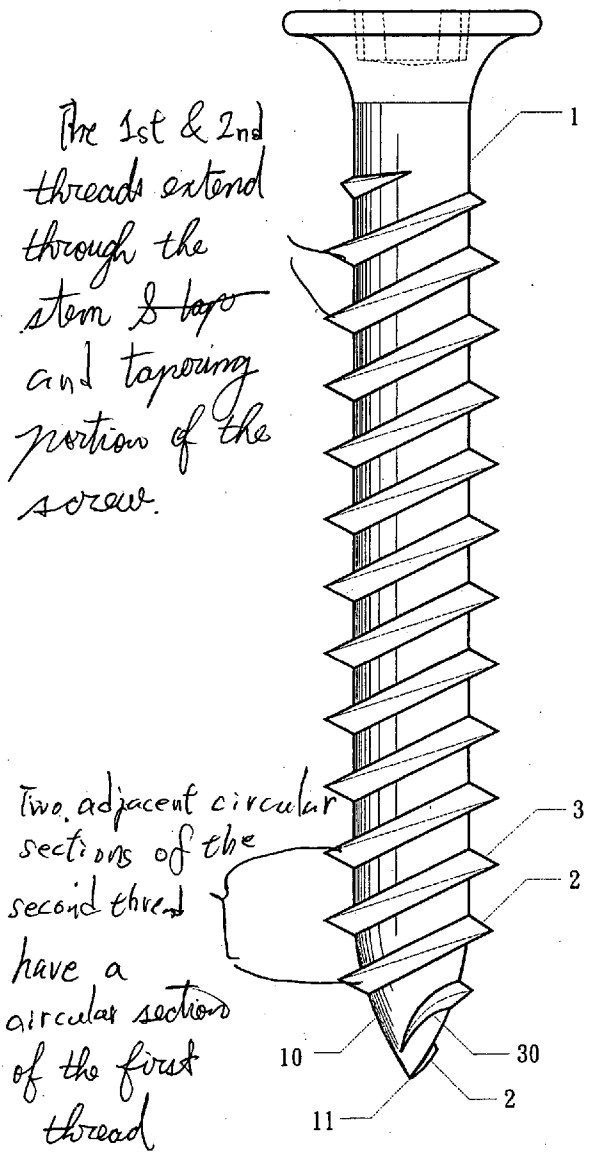 The 1st & 2nd
threads extend
through the
stem & tap
and tapering
portion of the
screw.
1
Two adjacent circular
sections of the
second thread
have a
circular section
of the first
thread
3
2
10
30
2
11